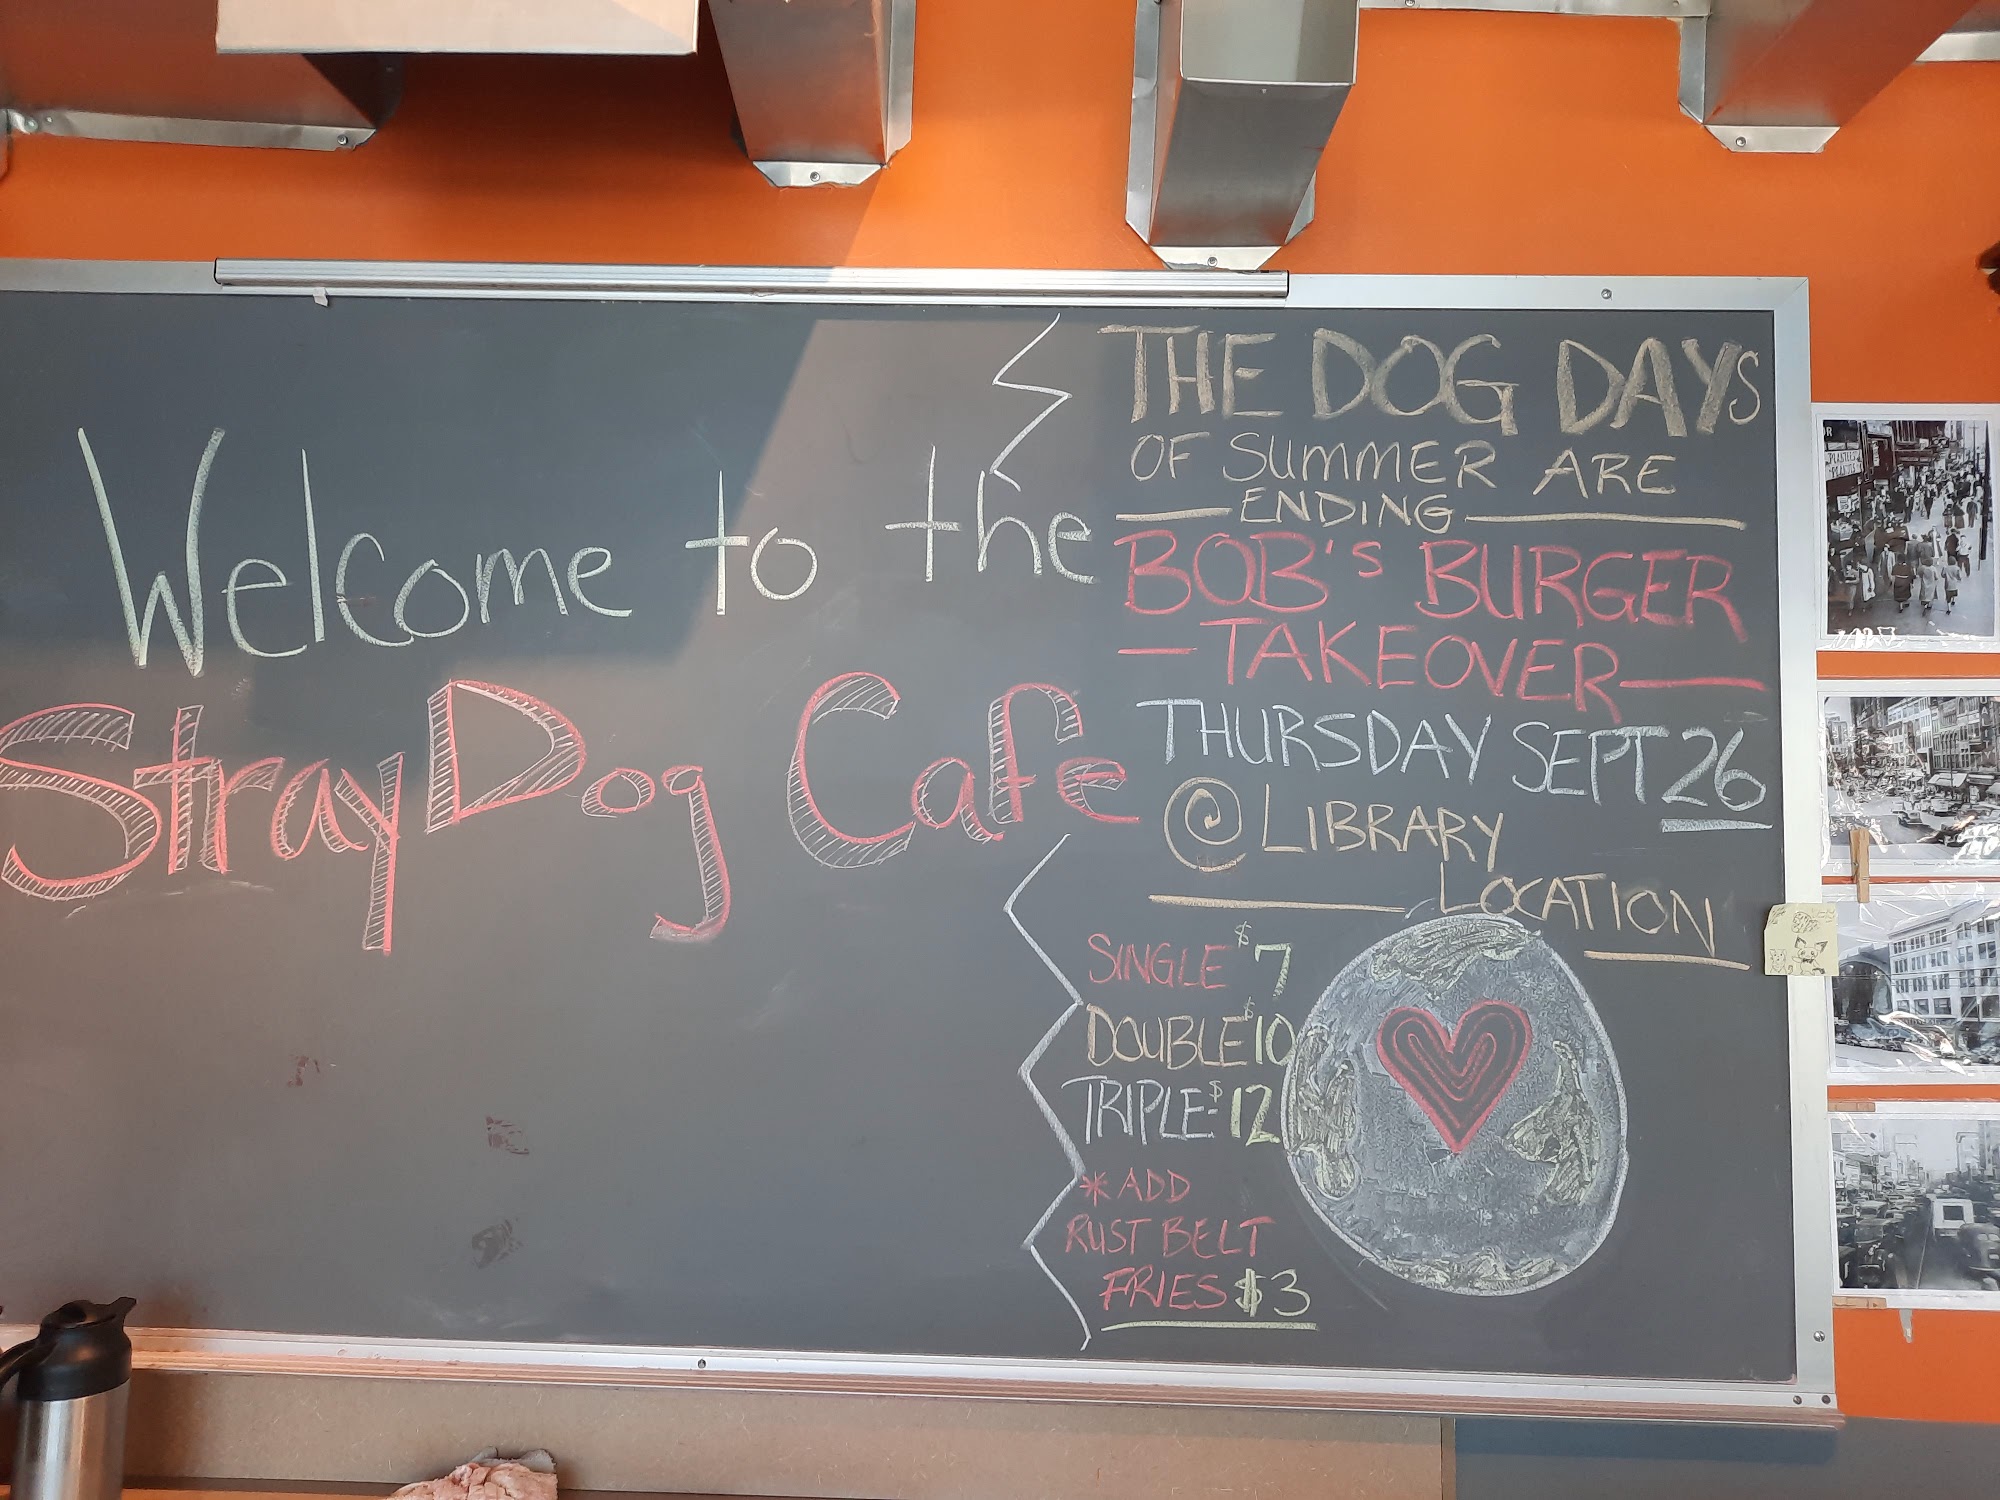 Welcome to the
Stray Dog Cafe
THE DOG DAYS
OF SUMMER ARE
ENDING
BOB'S BURGER
TAKEOVER
THURSDAY SEPT 26
@ LIBRARY
LOCATION
SINGLE $7
DOUBLE $10
TRIPLE $12
*ADD
RUST BELT
FRIES $3